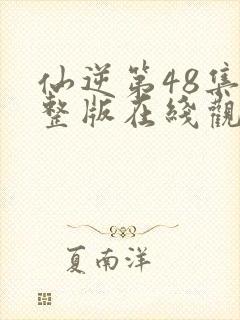 仙逆第48集
整版在綫觀
夏南洋